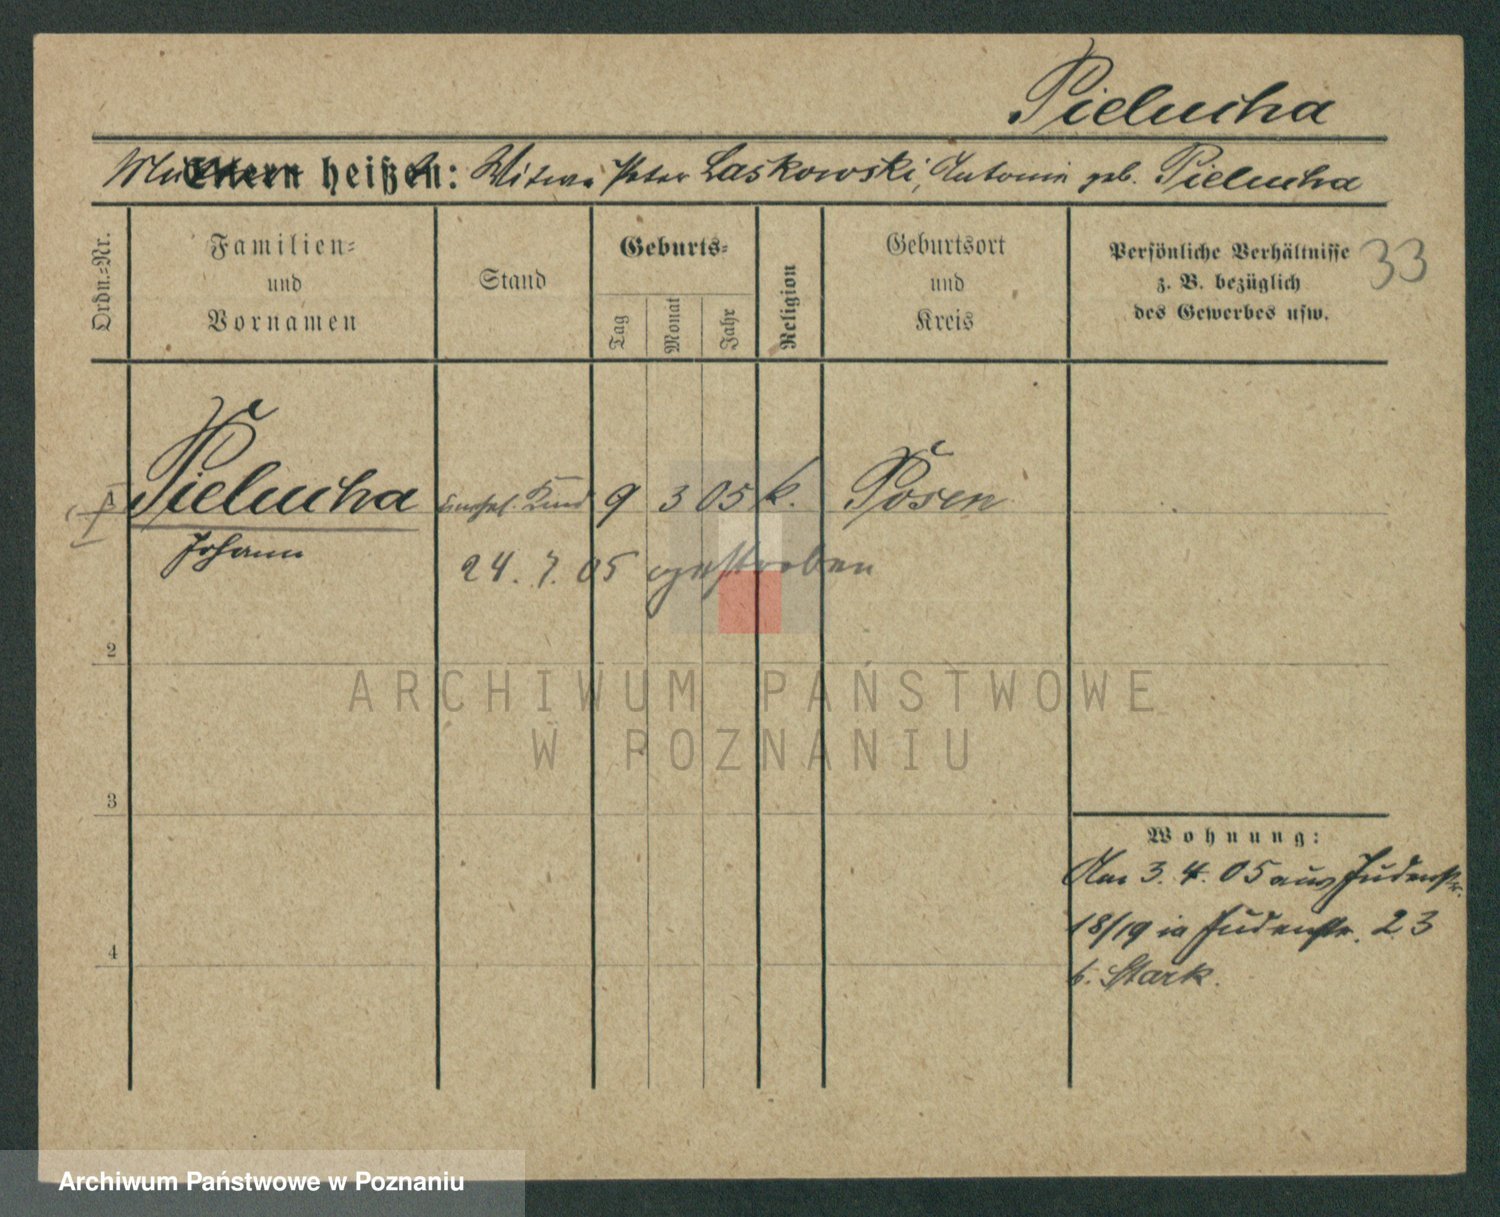 Pielucha
Mutter heißt: Witwe Peter Laskowski, Antonie geb. Pielucha
Ordn.-Nr.
Familien-
und
Vornamen
Stand
Geburts-
Tag
Monat
Jahr
Religion
Geburtsort
und
Kreis
Persönliche Verhältnisse
z. B. bezüglich
des Gewerbes usw.
33
1 Pielucha Kind 9 3 05 k. Posen
Johann
24. 7. 05 gestorben
2
ARCHIWUM PAŃSTWOWE
W POZNANIU
3
Wohnung:
Am 3. 4. 05 aus Judenstr.
18/19 in Judenstr. 23
b. Stark.
4
Archiwum Państwowe w Poznaniu